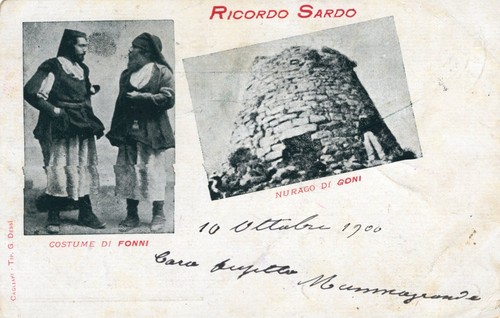 RICORDO SARDO
COSTUME DI FONNI
NURAGO DI GONI
CAGLIARI - TIP. G. DESSÌ
10 Ottobre 1900
Cara
Mammagrande